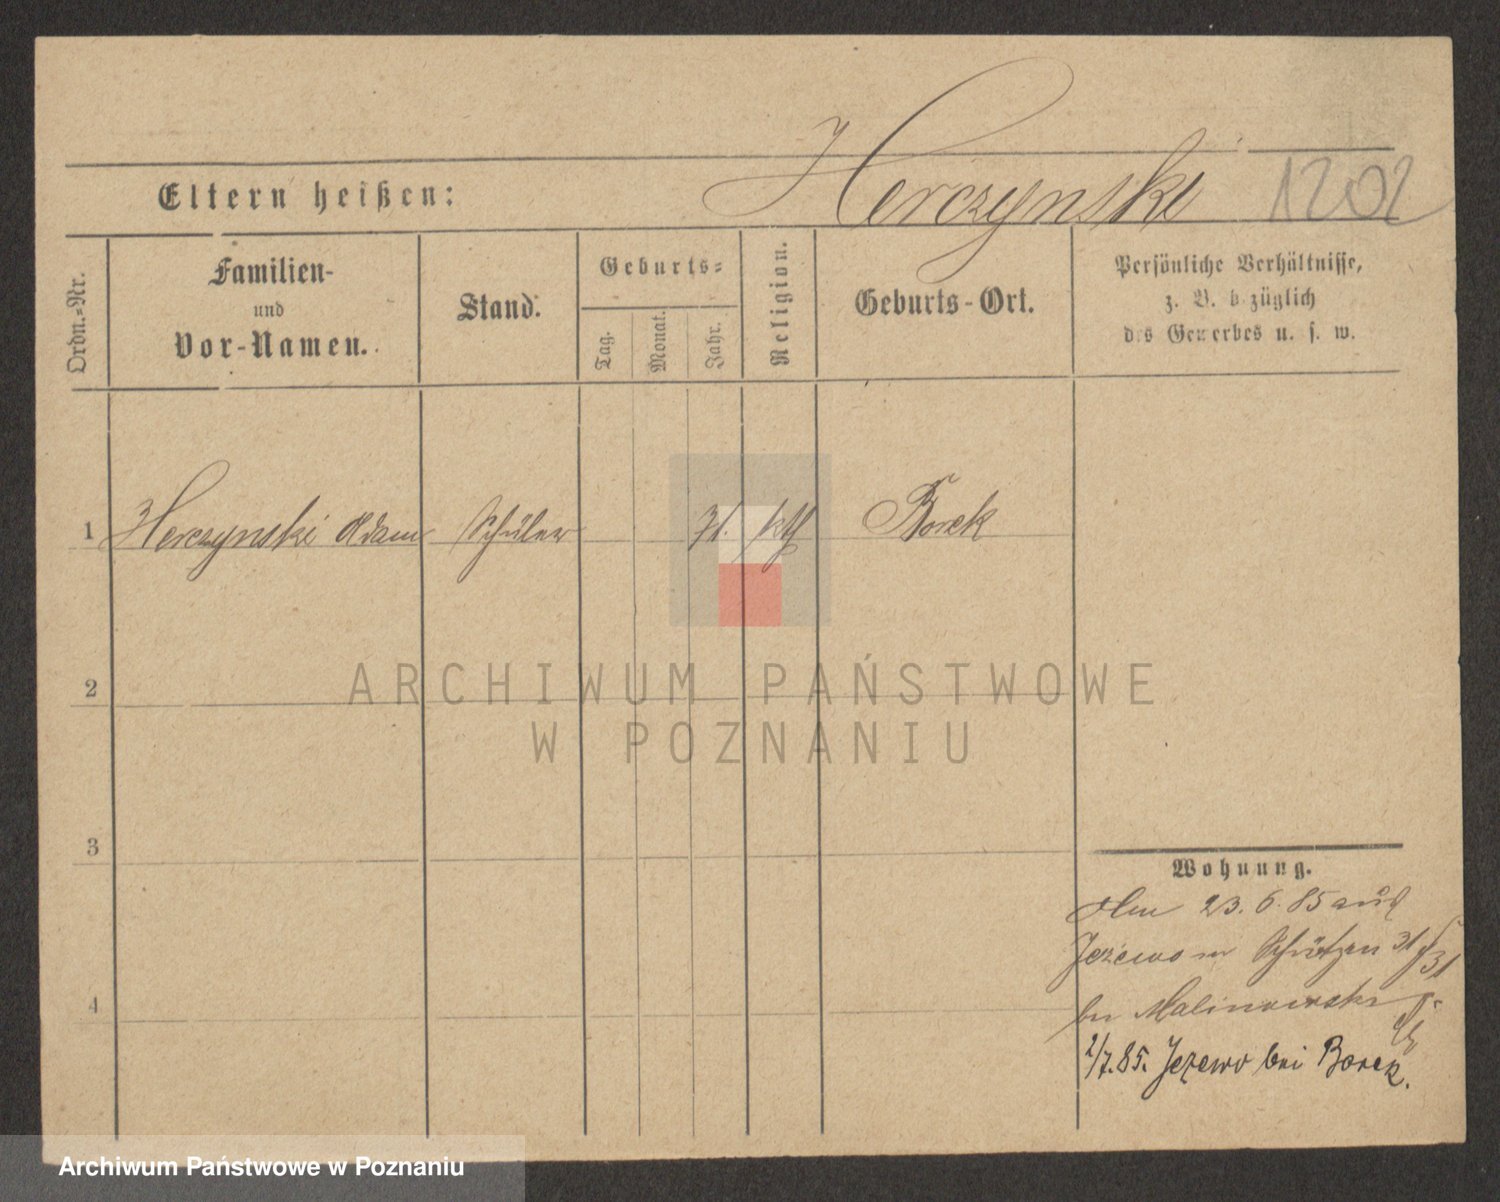 Herczynski 1202
Eltern heißen:
Ordn.=Nr.
Familien-
und
Vor-Namen.
Stand.
Geburts=
Tag.
Monat.
Jahr.
Religion.
Geburts-Ort.
Persönliche Verhältnisse,
z. B. bezüglich
des Gewerbes u. s. w.
1 Herczynski Adam Schüler 71. kth Borek
2
3
4
Wohnung.
Am 23. 6. 85 aus
Jezewo n Schützen 31
bei Malinowski
2/7. 85. Jezewo bei Borek.
ARCHIWUM PAŃSTWOWE
W POZNANIU
Archiwum Państwowe w Poznaniu